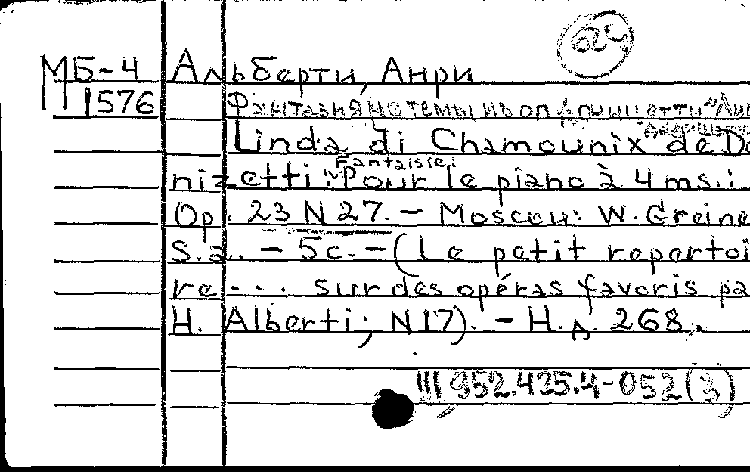 МБ-4 Альберти, Анри
1576 Фантазия на темы из оп. Доницетти "Лин
Linda di Chamounix de Do
nizetti: Fantaisie: Pour le piano à 4 ms.:
Op. 23 N 27. - Moscou: W. Greine
S.a. - 5c. - (Le petit repertoi
re... sur des opéras favoris pa
H. Alberti; N17). - Н.д. 268.
III 952.425.4-052(3)